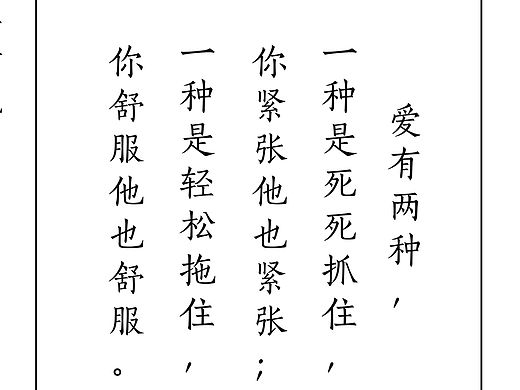 爱有两种，
一种是死死抓住，
你紧张他也紧张；
一种是轻松拖住，
你舒服他也舒服。